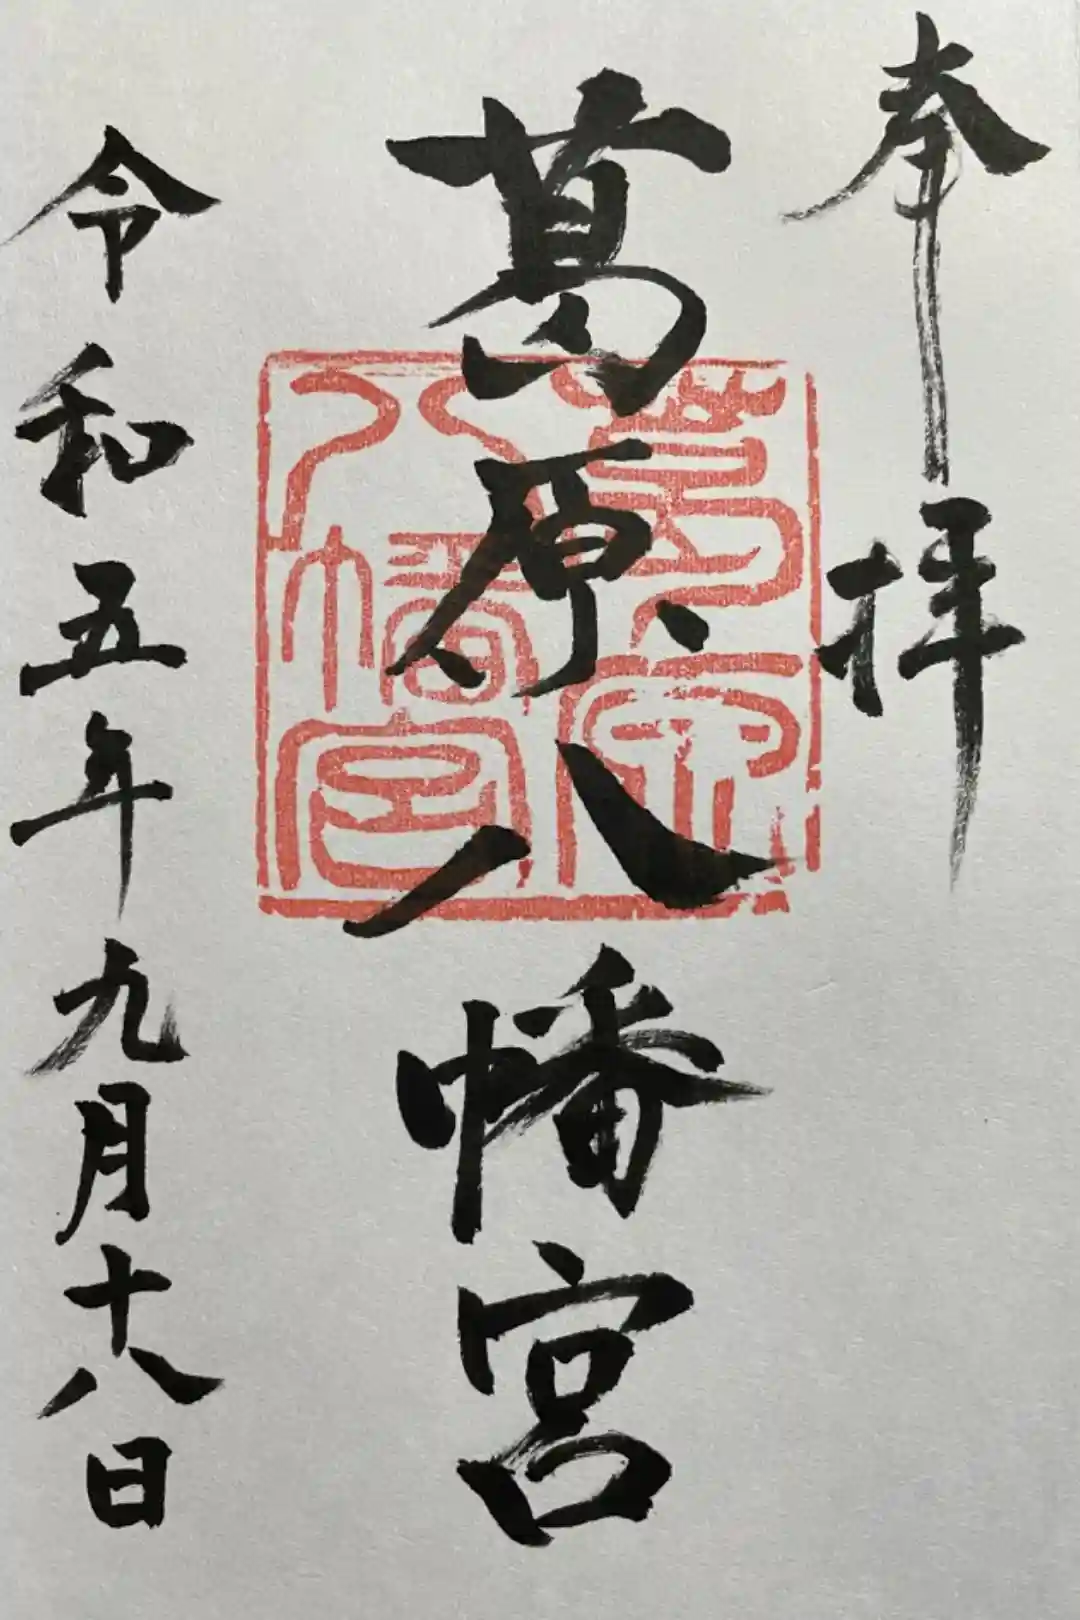 奉拝
葛原八幡宮
令和五年九月十八日
葛原
八幡宮